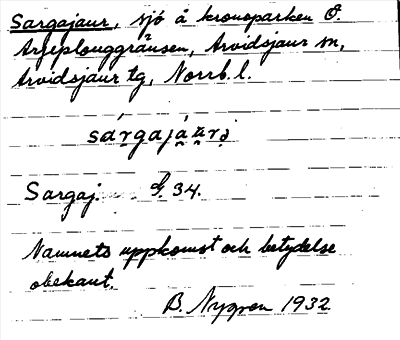 Sargajaur, sjö å kronoparken Ö.
Arjeplouggränsen, Arvidsjaur sn,
Arvidsjaur tg, Norrb. l.
sárgajáu̯rə
Sargaj. G 34.
Namnets uppkomst och betydelse
obekant.
B. Nygren 1932.